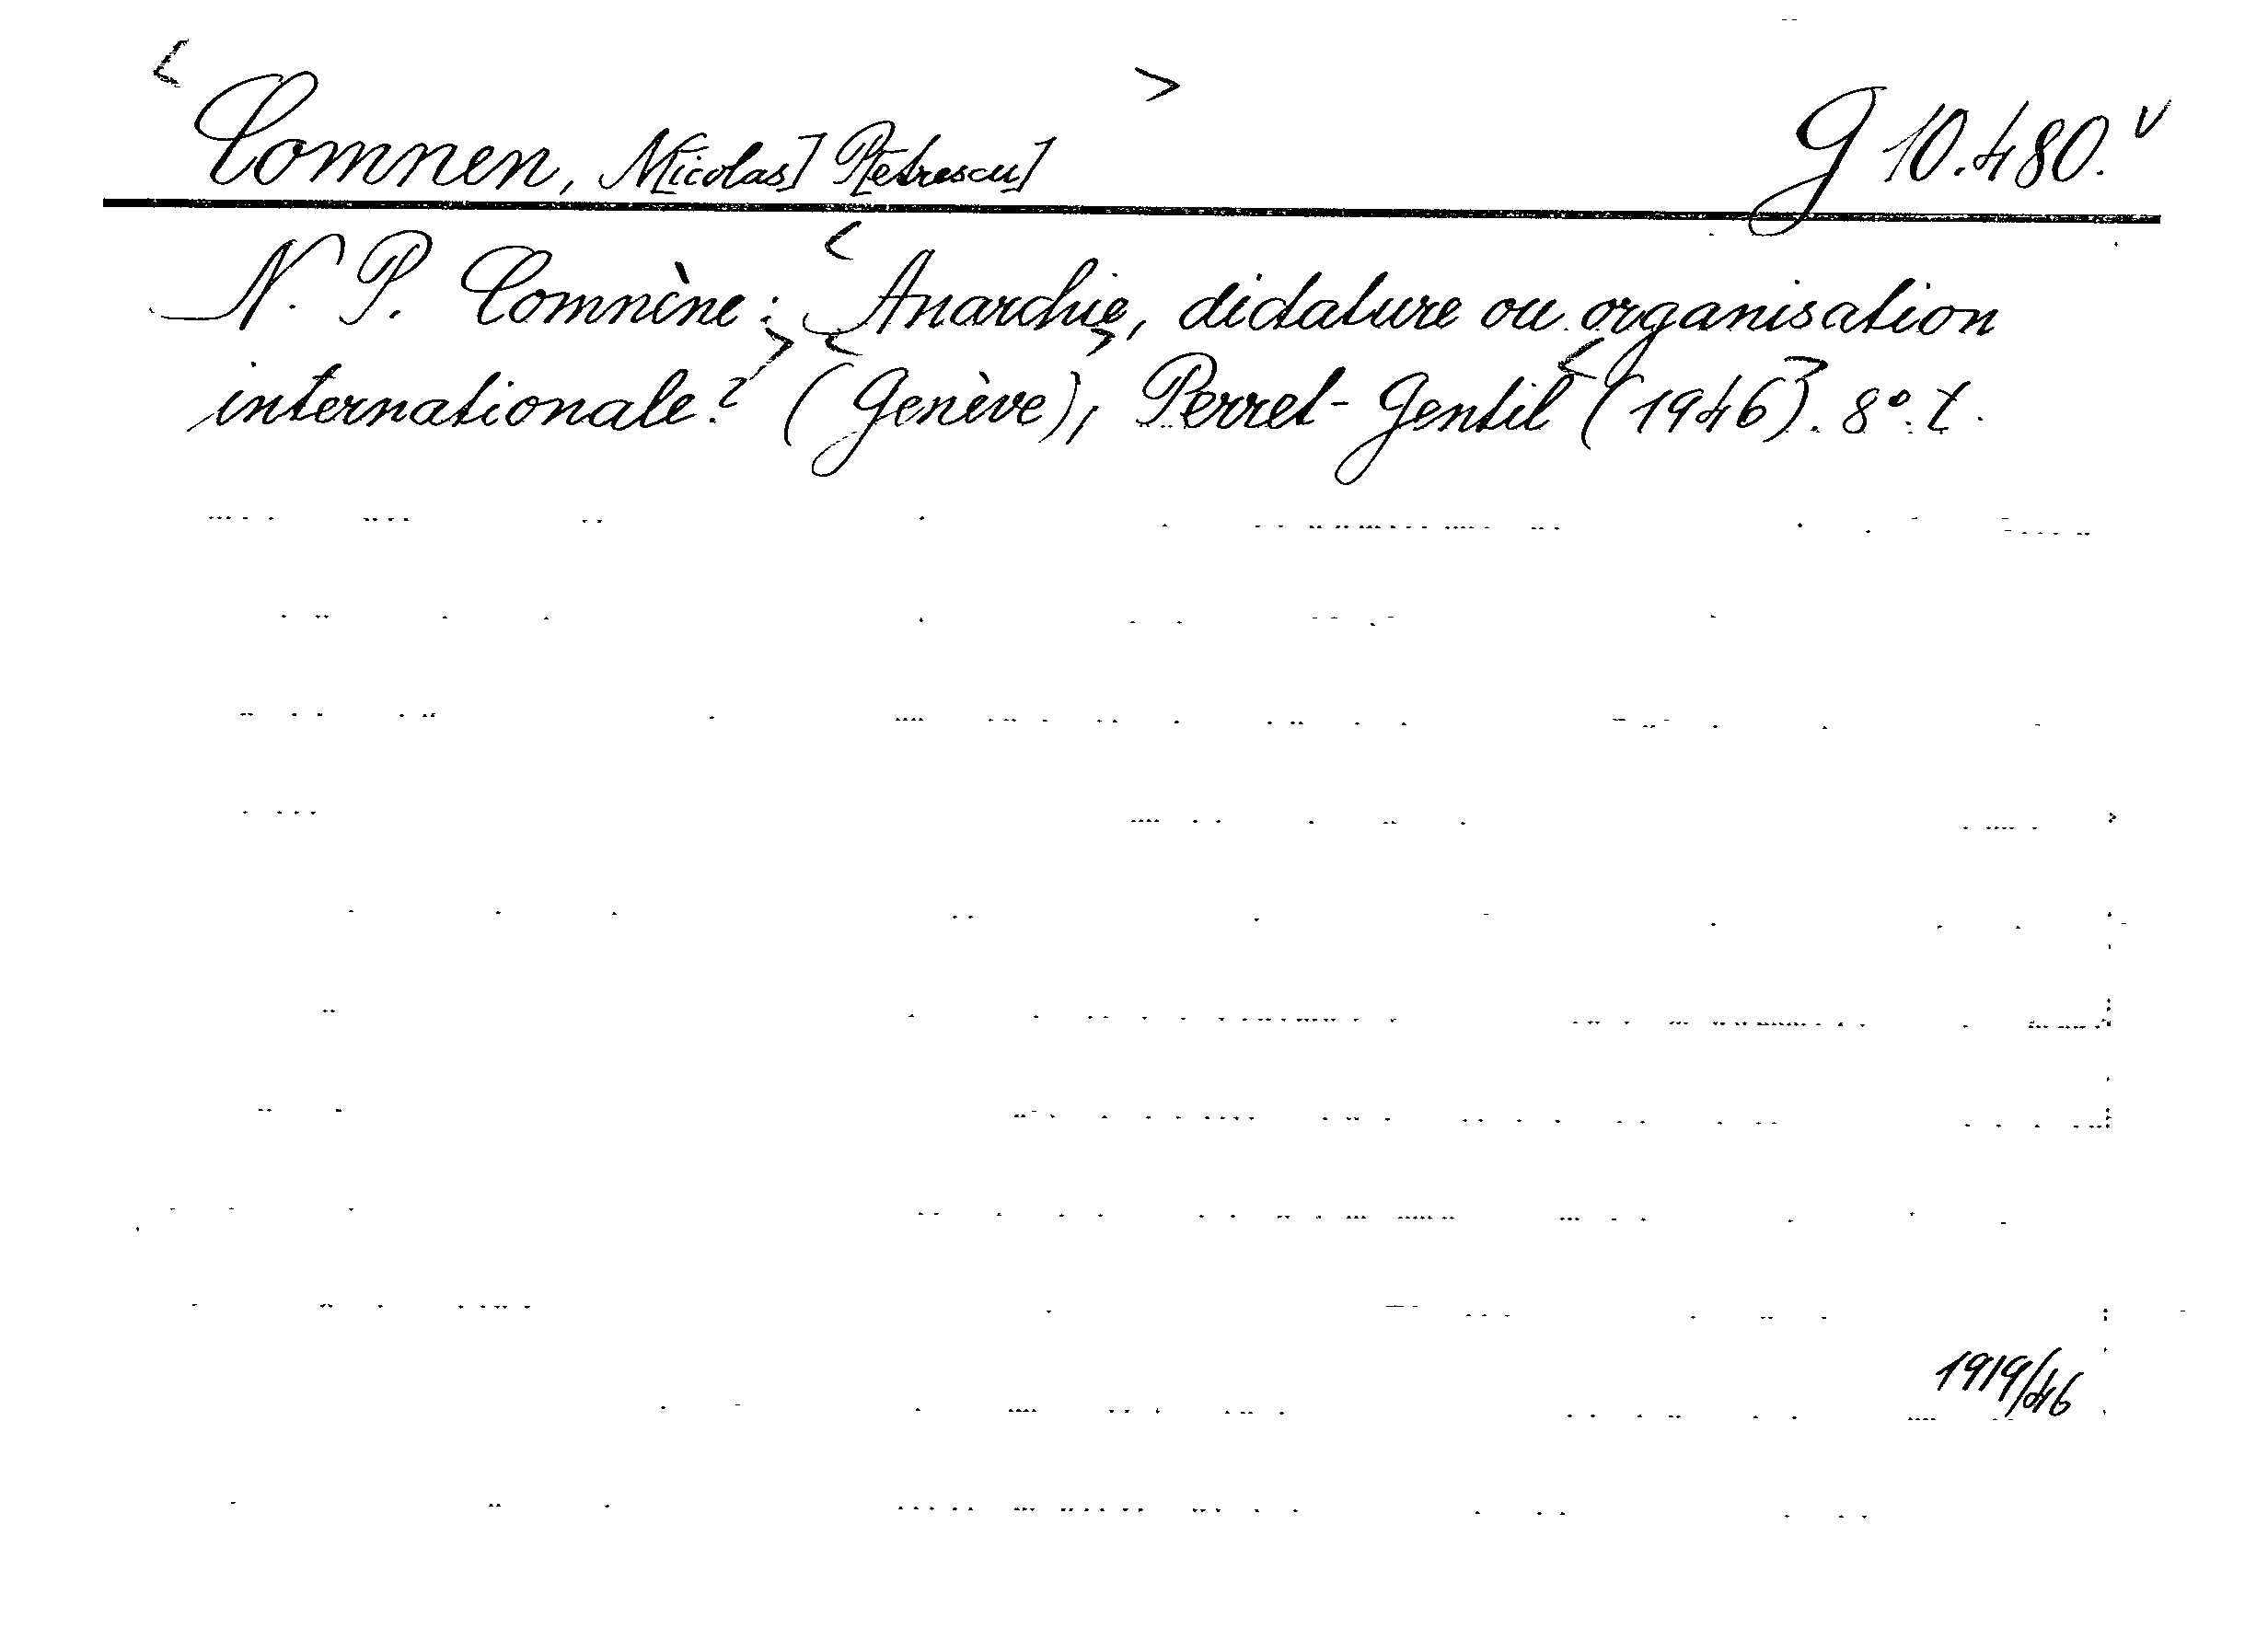 <Comnen, N[icolas] P[etrescu]> G 10.480. v
N. P. Comnène: <Anarchie, dictature ou organisation
internationale?> <(Genève)>, Perret-Gentil <(1946)>. 8°. t.
1919/46